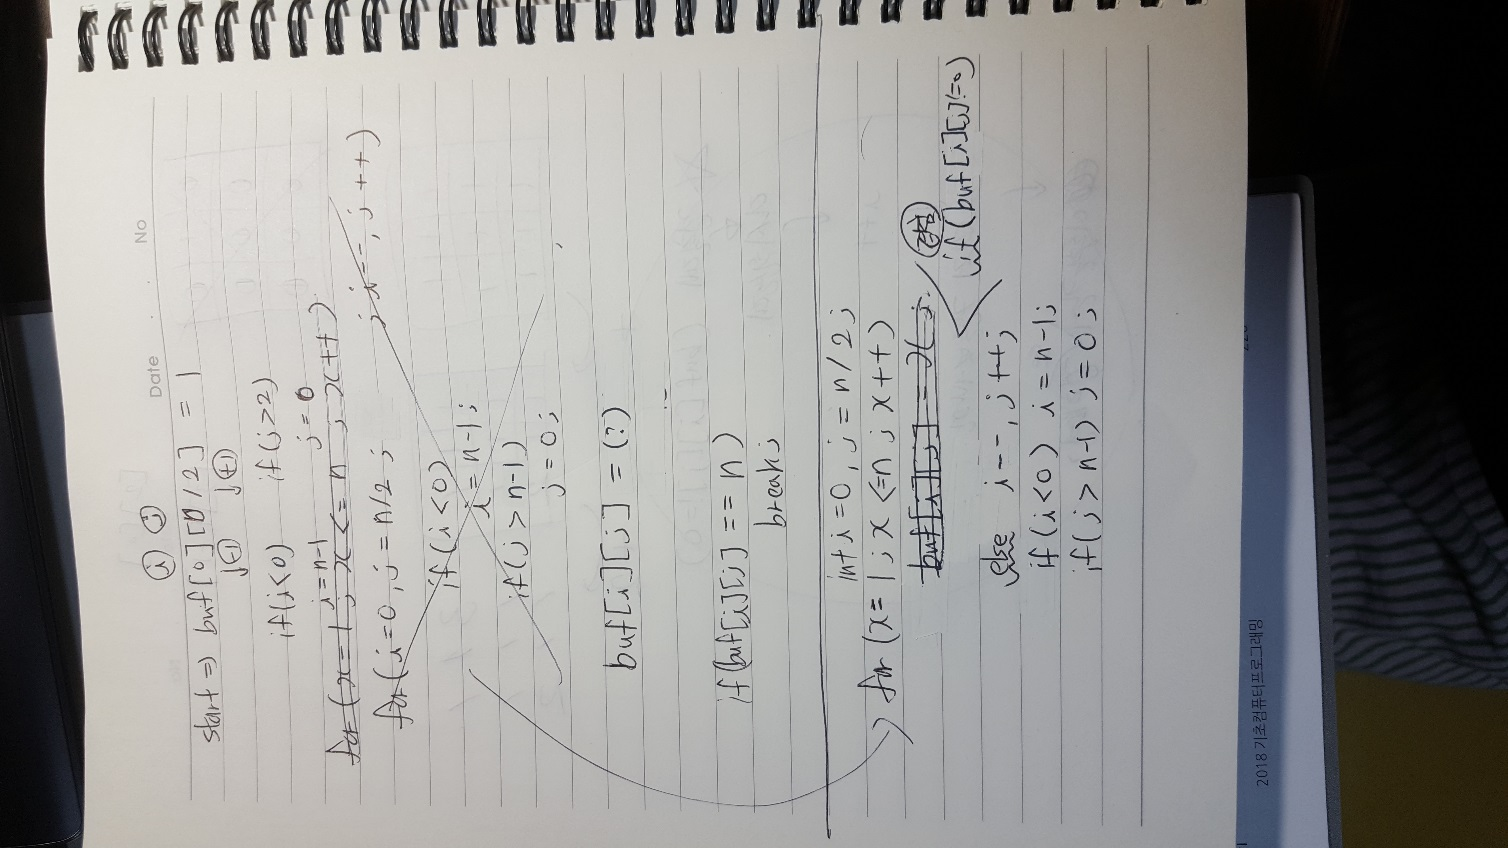 No
Date . .
i j
start => buf[0][n/2] = 1
↓(-1) ↓(+1)
if(i<0) if(j>2)
i=n-1 j=0
for(x=1; x<=n; x++)
for(i=0, j=n/2; ; i--, j++)
if(i<0)
i=n-1;
if(j>n-1)
j=0;
buf[i][j] = (?)
if(buf[i][j] == n)
break;
int i=0, j=n/2;
for(x=1; x<=n; x++)
buf[i][j] = x;
if(buf[i][j]!=0)
else i--, j++;
if(i<0) i=n-1;
if(j>n-1) j=0;
2018 기초컴퓨터프로그래밍